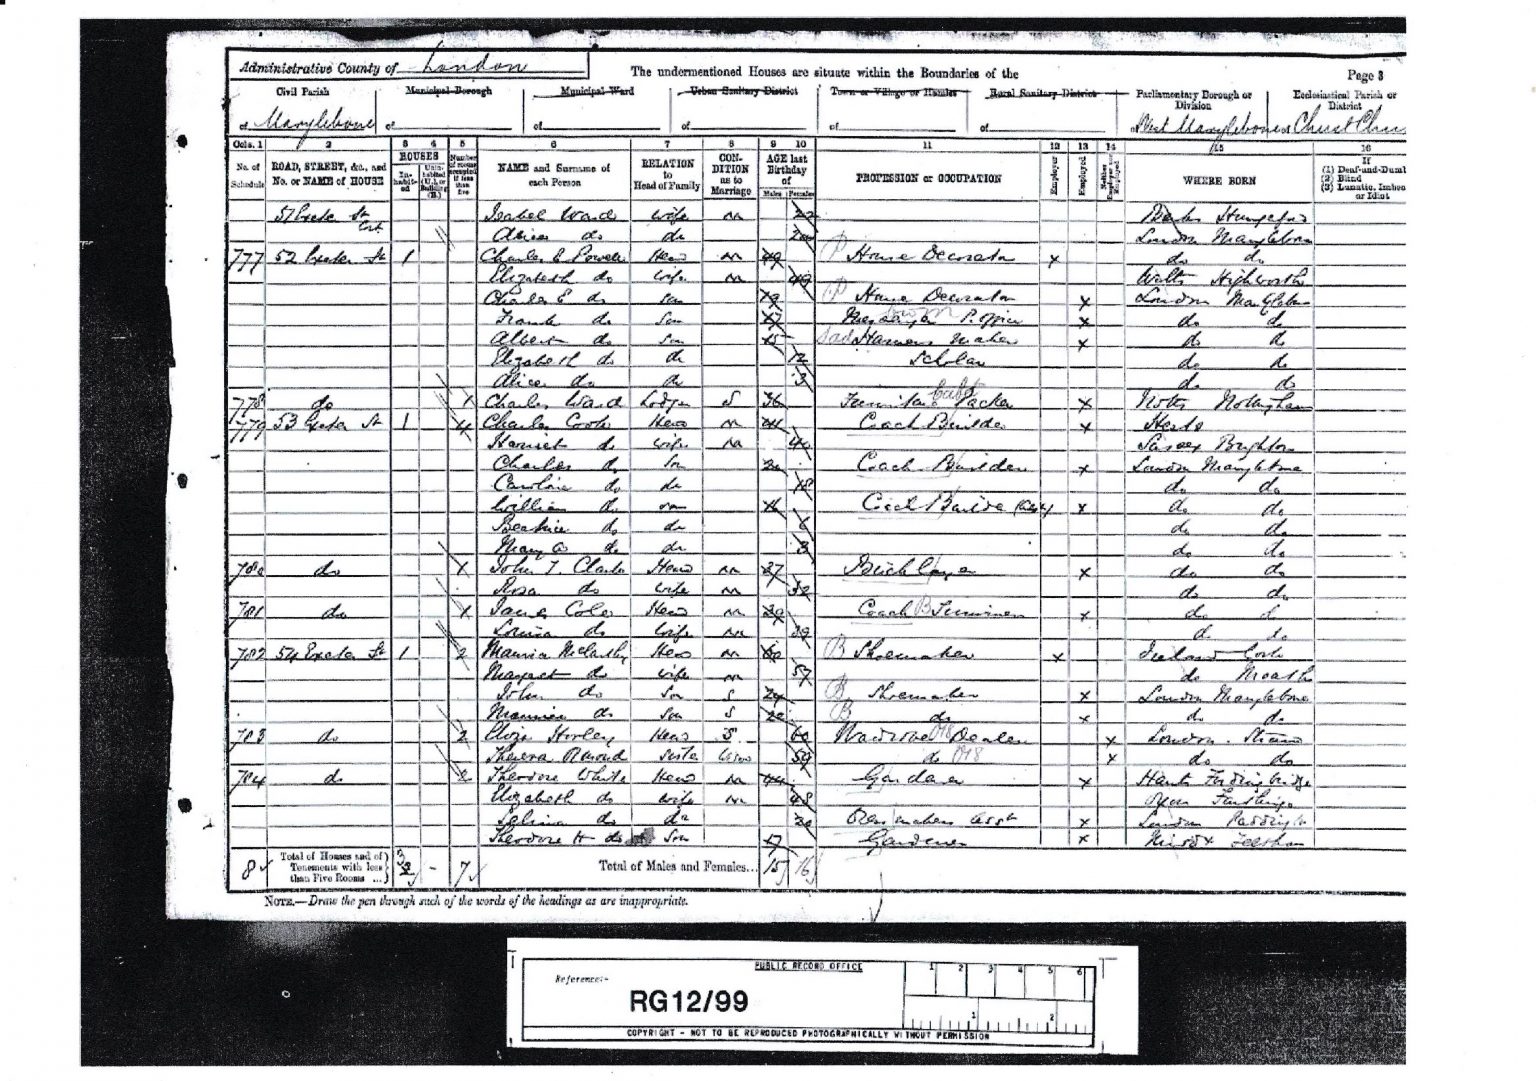 Administrative County of London
The undermentioned Houses are situate within the Boundaries of the
Page 3
Civil Parish
Municipal Borough
Municipal Ward
Urban Sanitary District
Town or Village or Hamlet
Rural Sanitary District
Parliamentary Borough or Division
Ecclesiastical Parish or District
of Marylebone of of of of of of West Marylebone of Christ Chu
Cols. 1 2 3 4 5 6 7 8 9 10 11 12 13 14 15 16
No. of Schedule
ROAD, STREET, &c., and No. or NAME of HOUSE
HOUSES
Inhabited
Uninhabited (U.), or Building (B.)
Number of rooms occupied if less than five
NAME and Surname of each Person
RELATION to Head of Family
CONDITION as to Marriage
AGE last Birthday of
Males Females
PROFESSION or OCCUPATION
Employer
Employed
Neither Employer nor Employed
WHERE BORN
If
(1) Deaf-and-Dumb
(2) Blind
(3) Lunatic, Imbec
or Idiot
51 Exeter St Isabel Ward wife m 22 Berks Hungerford
Alice do da London Marylebone
777 52 Exeter St 1 Charles E Powell Head m 49 House Decorator x do do
Elizabeth do wife m 49 Wilts Highworth
Charles E do son 19 House Decorator x London Marylebone
Frank do Son 17 Messenger P. Office x do do
Albert do son 15 Harness Maker x do do
Elizabeth do da 12 Scholar do do
Alice do da 3 do do
778 do 1 Charles Ward Lodger S 36 Furniture Packer x Notts Nottingham
779 53 Exeter St 1 4 Charles Cook Head m 41 Coach Builder x Herts
Harriet do wife m 40 Sussex Brighton
Charles do Son 20 Coach Builder x London Marylebone
Caroline do da 18 do do
William do son 16 Coach Builder x do do
Beatrice do da 6 do do
Mary A do da 3 do do
780 do 1 John T. Clark Head m 27 Bricklayer x do do
Rosa do wife m 32 do do
781 do 1 James Cole Head m 39 Coach Trimmer x do do
Louisa do wife m 39 do do
782 54 Exeter St 1 2 Maurice McCarthy Head m 60 Shoemaker x Ireland Cork
Margaret do wife m 57 do Meath
John do Son S 24 Shoemaker x London Marylebone
Maurice do Son S 22 do x do do
783 do 2 Eliza Head S 60 Wardrobe Dealer x London Strand
Theresa sister Widow 59 do x do do
784 do 2 Theodore White Head m 44 Gardener x Hants Fordingbridge
Elizabeth do wife m 48 Oxon
Selina do da 20 Dressmakers Asst x London Paddington
Theodore H do Son 17 Gardener x Middx Feltham
8 Total of Houses and of Tenements with less than Five Rooms ... 3 - 7 Total of Males and Females... 15 16
NOTE.—Draw the pen through such of the words of the headings as are inappropriate.
PUBLIC RECORD OFFICE
1 2 3 4 5 6
Reference:-
RG12/99
1 2
COPYRIGHT - NOT TO BE REPRODUCED PHOTOGRAPHICALLY WITHOUT PERMISSION